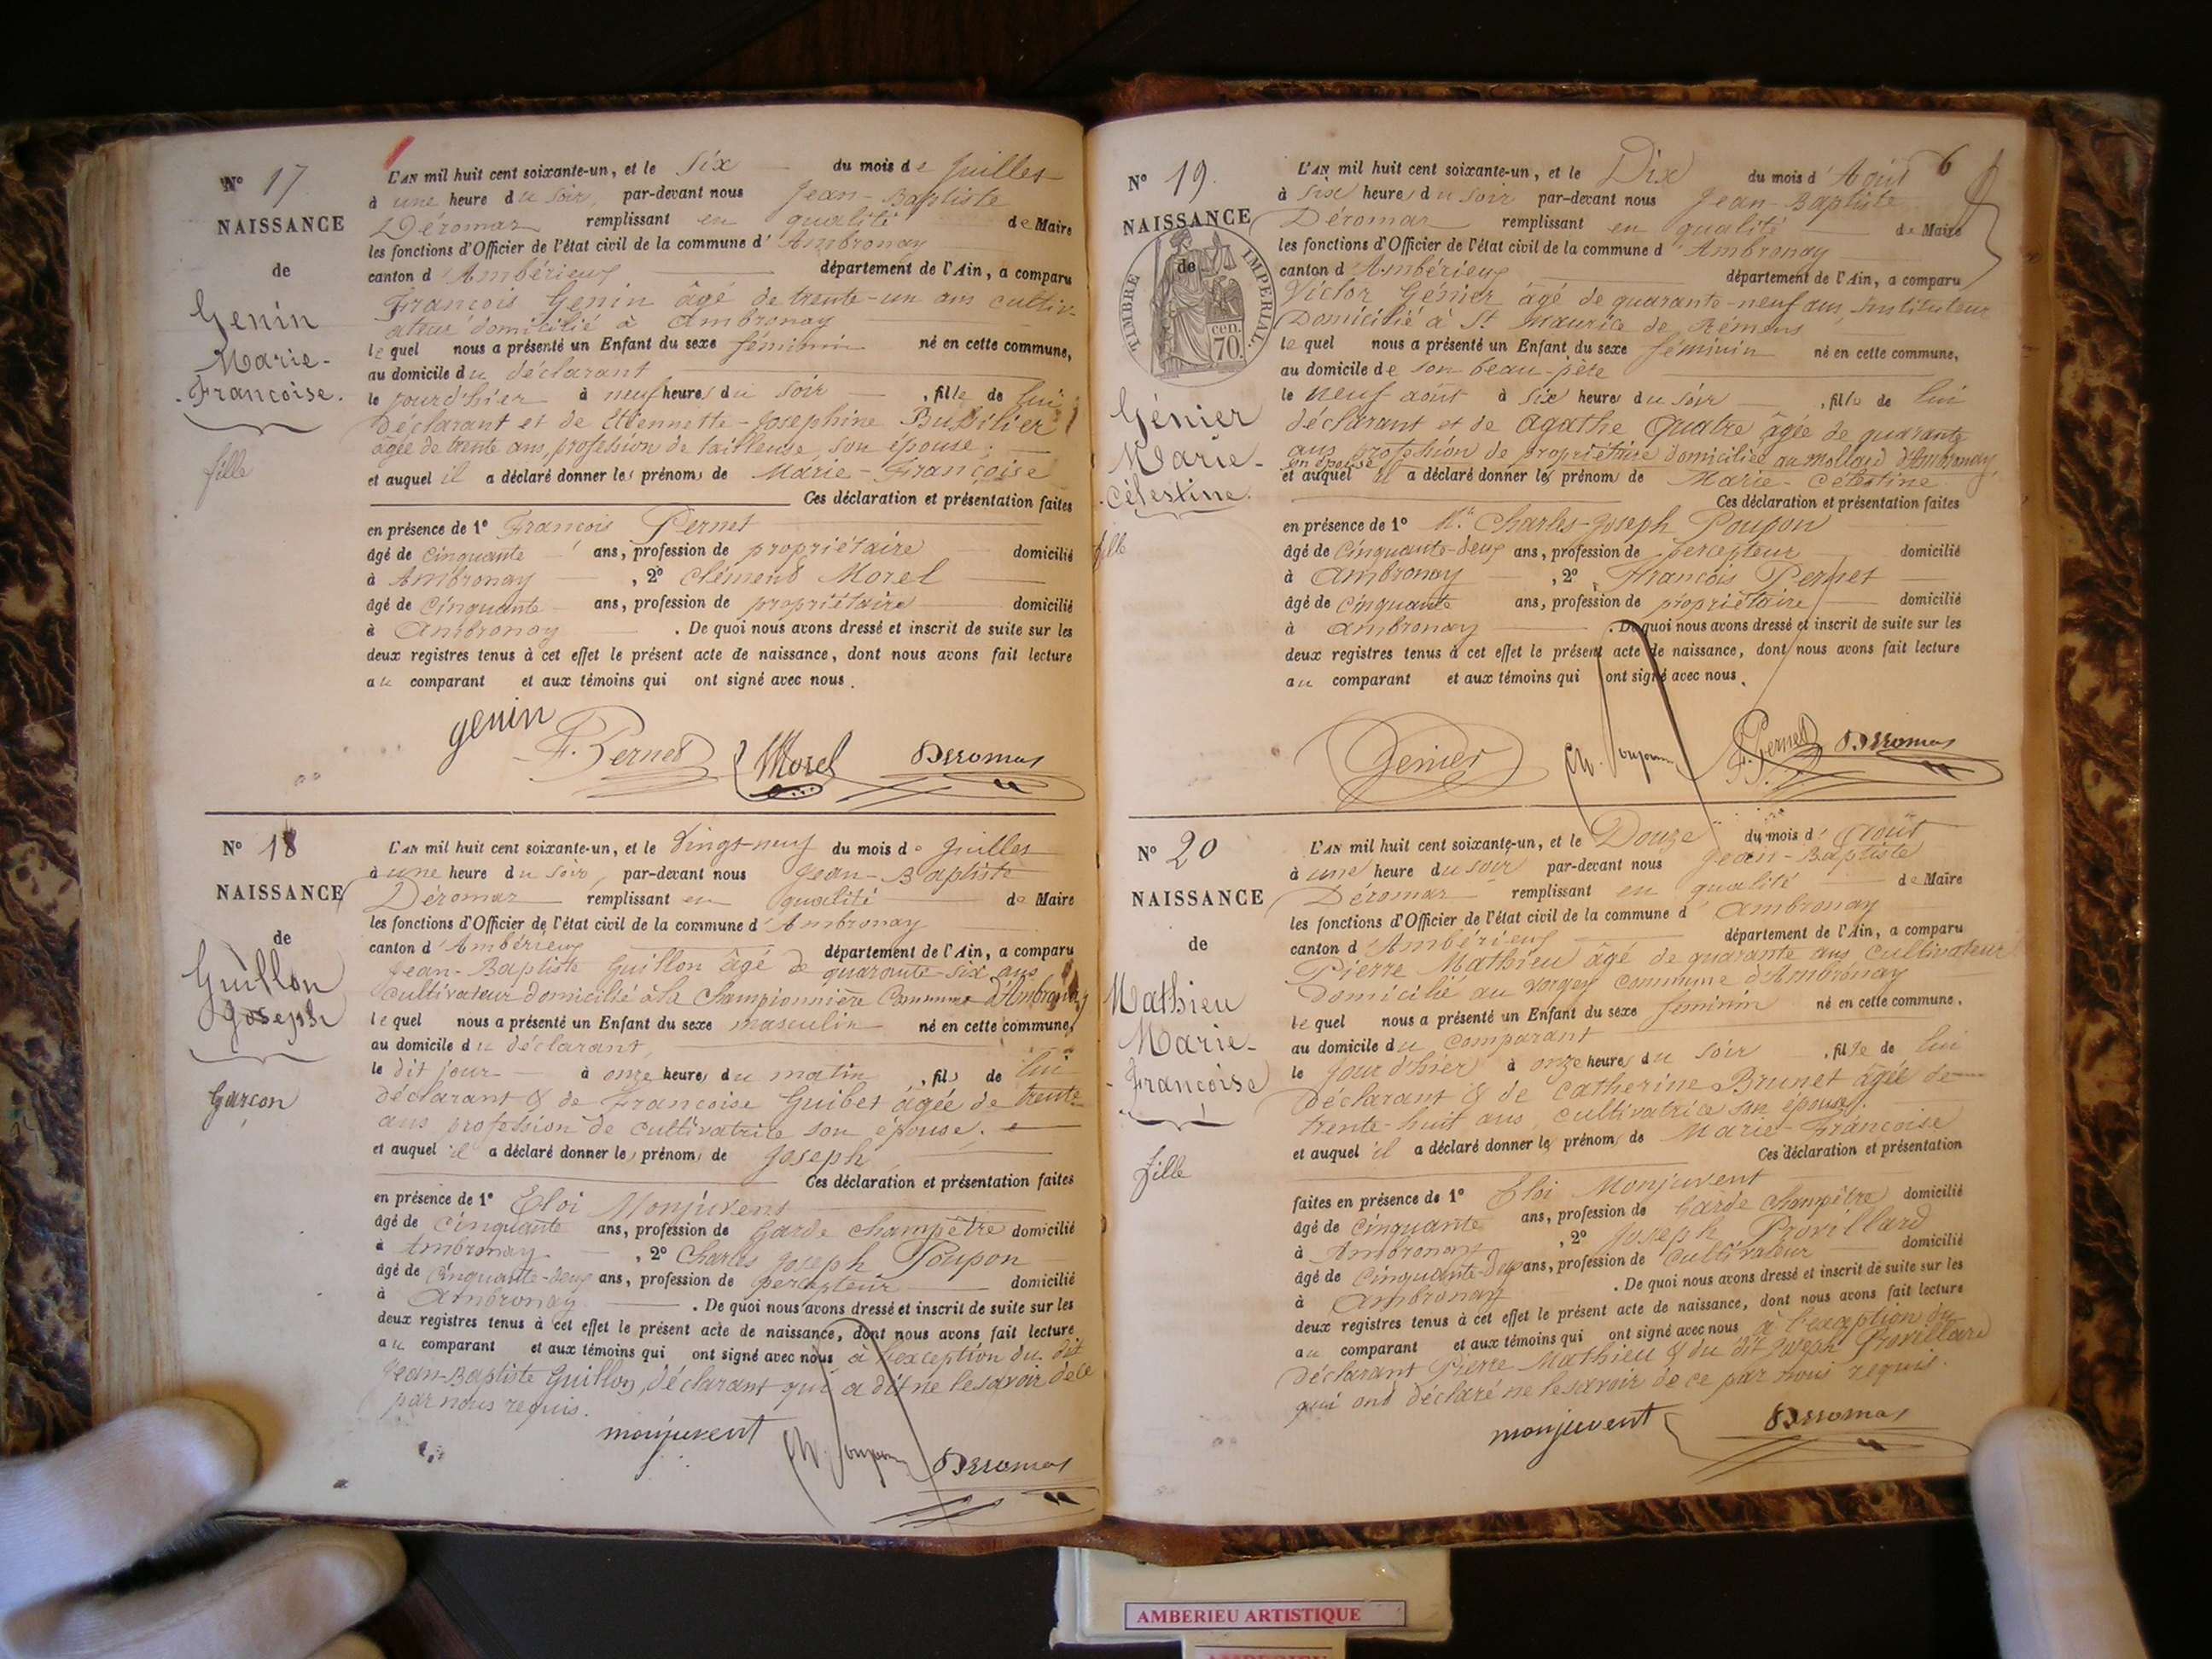 N° 17
NAISSANCE
de
Genin
Marie-
Françoise.
fille
L'AN mil huit cent soixante-un, et le Six du mois de Juillet
à une heure du soir, par-devant nous Jean-Baptiste
Déromas remplissant en qualité de Maire
les fonctions d'Officier de l'état civil de la commune d'Ambronay
canton d'Ambérieux département de l'Ain, a comparu
François Genin âgé de trente-un ans cultiv-
ateur domicilié à Ambronay
lequel nous a présenté un Enfant du sexe féminin né en cette commune,
au domicile du déclarant
le jour d'hier à neuf heures du soir, fille de lui
déclarant et de Etiennette-Josephine
âgée de trente ans, profession de tailleuse, son épouse,
et auquel il a déclaré donner les prénoms de Marie-Françoise
Ces déclaration et présentation faites
en présence de 1° François Pernet
âgé de cinquante ans, profession de propriétaire domicilié
à Ambronay, 2° Clément Morel
âgé de cinquante ans, profession de propriétaire domicilié
à Ambronay. De quoi nous avons dressé et inscrit de suite sur les
deux registres tenus à cet effet le présent acte de naissance, dont nous avons fait lecture
au comparant et aux témoins qui ont signé avec nous.
genin F. Pernet Morel Deromas
N° 18
NAISSANCE
de
Guillon
Joseph
Garçon
L'AN mil huit cent soixante-un, et le Vingt-neuf du mois de Juillet
à une heure du soir, par-devant nous Jean-Baptiste
Déromas remplissant en qualité de Maire
les fonctions d'Officier de l'état civil de la commune d'Ambronay
canton d'Ambérieux département de l'Ain, a comparu
Jean-Baptiste Guillon âgé de quarante-six ans
cultivateur domicilié à la Championnière Commune d'Ambronay
lequel nous a présenté un Enfant du sexe masculin né en cette commune,
au domicile du déclarant,
le dit jour à onze heures du matin, fils de lui
déclarant & de Françoise Guibet agée de trente
ans profession de cultivatrice son épouse.
et auquel il a déclaré donner les prénoms de Joseph
Ces déclaration et présentation faites
en présence de 1° Eloi Monjuvent
âgé de cinquante ans, profession de Garde champêtre domicilié
à Ambronay, 2° Charles Joseph Poupon
âgé de cinquante-deux ans, profession de percepteur domicilié
à Ambronay. De quoi nous avons dressé et inscrit de suite sur les
deux registres tenus à cet effet le présent acte de naissance, dont nous avons fait lecture
au comparant et aux témoins qui ont signé avec nous à l'exception du dit
Jean-Baptiste Guillon, déclarant qui a dit ne le savoir de ce
par nous requis.
monjuvent Ch. Poupon Deromas
6
N° 19.
NAISSANCE
de
TIMBRE IMPERIAL
cen.
70.
Génier
Marie-
Célestine.
fille
L'AN mil huit cent soixante-un, et le Dix du mois d'Août
à six heures du soir par-devant nous Jean-Baptiste
Déromas remplissant en qualité de Maire
les fonctions d'Officier de l'état civil de la commune d'Ambronay
canton d'Ambérieux département de l'Ain, a comparu
Victor Génier âgé de quarante-neuf ans, Instituteur
Domicilié à St Maurice de Rémens
lequel nous a présenté un Enfant du sexe féminin né en cette commune,
au domicile de son beau-père
le neuf août à six heures du soir, fille de lui
déclarant et de Agathe Quatre âgée de quarante
ans profession de propriétaire domiciliée au Mollard d'Ambronay,
son épouse
et auquel il a déclaré donner les prénoms de Marie-Célestine.
Ces déclaration et présentation faites
en présence de 1° Mr. Charles-Joseph Poupon
âgé de cinquante-deux ans, profession de percepteur domicilié
à Ambronay, 2° François Pernet
âgé de cinquante ans, profession de propriétaire domicilié
à Ambronay. De quoi nous avons dressé et inscrit de suite sur les
deux registres tenus à cet effet le présent acte de naissance, dont nous avons fait lecture
au comparant et aux témoins qui ont signé avec nous.
Genier Ch. Poupon F. Pernet Deromas
N° 20
NAISSANCE
de
Mathieu
Marie-
Françoise
fille
L'AN mil huit cent soixante-un, et le Douze du mois d'Août
à une heure du soir par-devant nous Jean-Baptiste
Déromas remplissant en qualité de Maire
les fonctions d'Officier de l'état civil de la commune d'Ambronay
canton d'Ambérieux département de l'Ain, a comparu
Pierre Mathieu âgé de quarante ans cultivateur
domicilié au vorgey commune d'Ambronay
lequel nous a présenté un Enfant du sexe féminin né en cette commune.
au domicile du comparant
le jour d'hier à onze heures du soir, fille de lui
déclarant & de Catherine Brunet agée de
trente-huit ans, cultivatrice son épouse,
et auquel il a déclaré donner les prénoms de Marie-Françoise
Ces déclaration et présentation
faites en présence de 1° Eloi Monjuvent
âgé de cinquante ans, profession de Garde champêtre domicilié
à Ambronay, 2° Joseph Provillard
âgé de cinquante-deux ans, profession de cultivateur domicilié
à Ambronay. De quoi nous avons dressé et inscrit de suite sur les
deux registres tenus à cet effet le présent acte de naissance, dont nous avons fait lecture
au comparant et aux témoins qui ont signé avec nous à l'exception du
déclarant Pierre Mathieu & du dit Joseph Provillard
qui ont déclaré ne le savoir de ce par nous requis.
monjuvent Deromas
AMBERIEU ARTISTIQUE